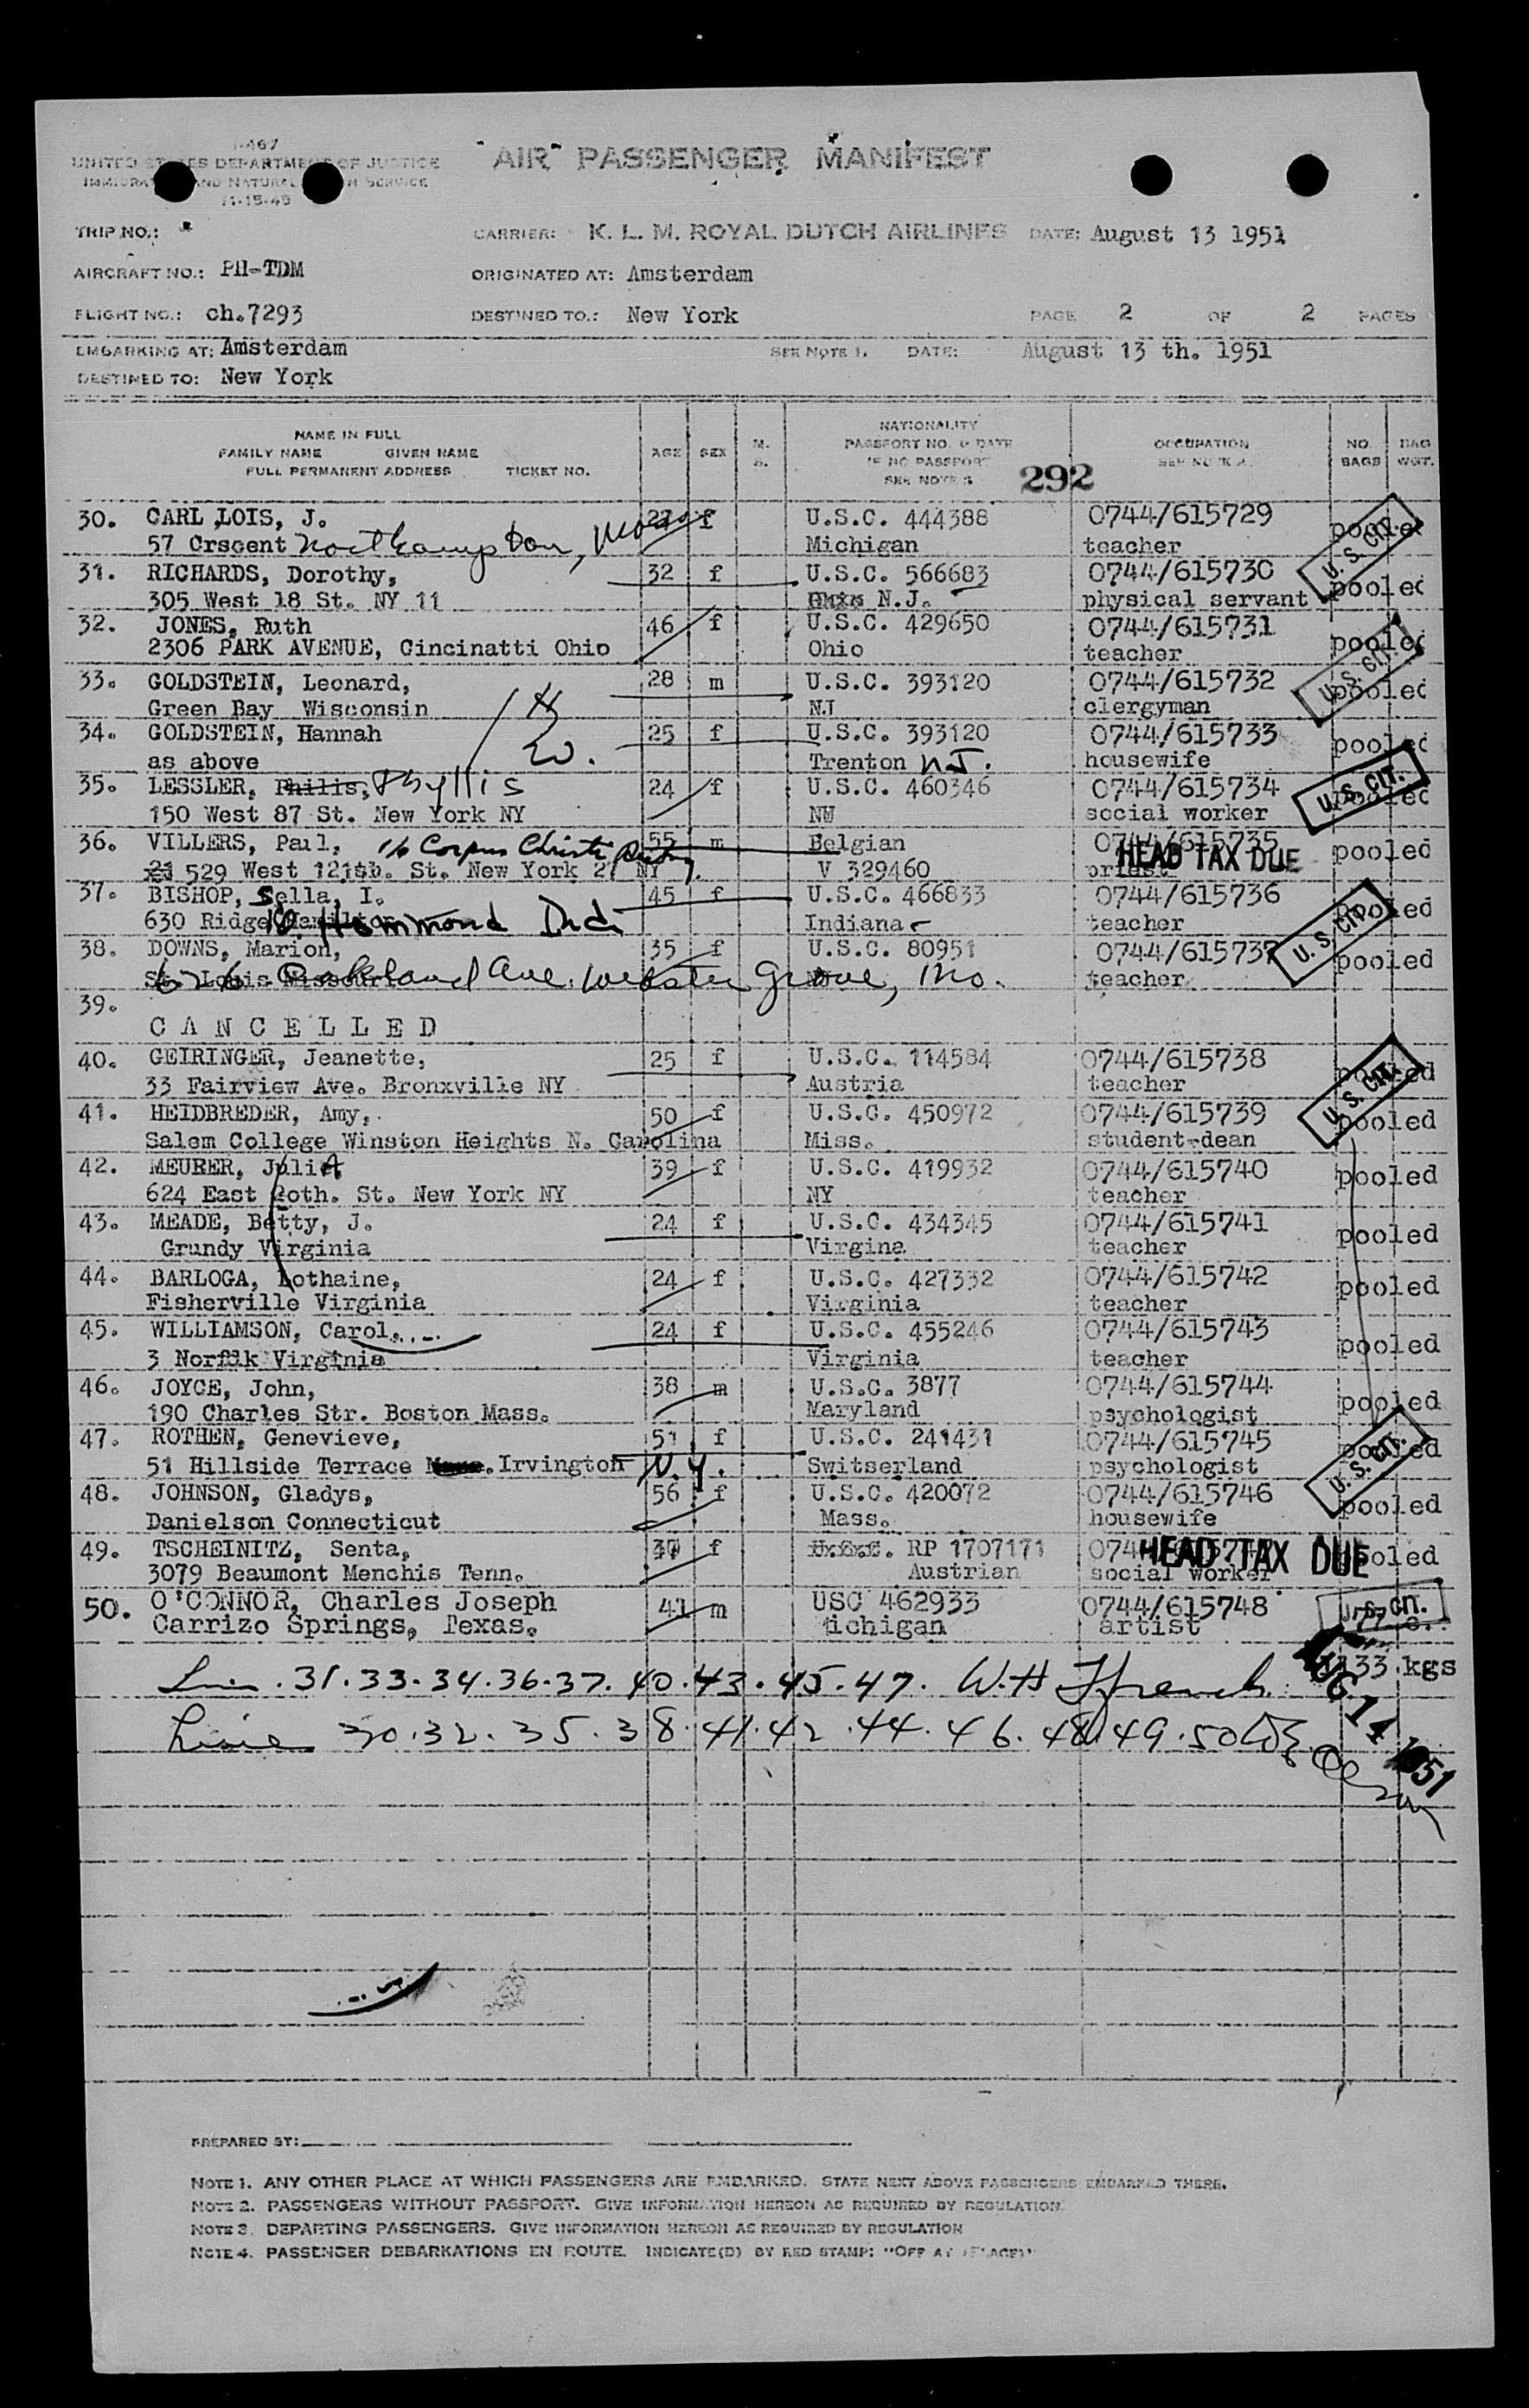 I-467
UNITED STATES DEPARTMENT OF JUSTICE
IMMIGRATION AND NATURALIZATION SERVICE
11-15-49
AIR PASSENGER MANIFEST
TRIP NO.:
CARRIER: K. L. M. ROYAL DUTCH AIRLINES DATE: August 13 1951
AIRCRAFT NO.: PH-TDM ORIGINATED AT: Amsterdam
FLIGHT NO.: ch.7293 DESTINED TO.: New York PAGE 2 OF 2 PAGES
EMBARKING AT: Amsterdam SEE NOTE 1. DATE: August 13 th. 1951
DESTINED TO: New York
NAME IN FULL
FAMILY NAME GIVEN NAME
FULL PERMANENT ADDRESS TICKET NO.
AGE SEX M. S.
NATIONALITY
PASSPORT NO. & DATE
IF NO PASSPORT
SEE NOTE 3
292
OCCUPATION
SEE NOTE 2
NO. BAGS
BAG WGT.
30. CARL ,LOIS, J. 27 f U.S.C. 444388 0744/615729 pooled
57 Crscent Northampton, Mass Michigan teacher
U. S. CIT.
31. RICHARDS, Dorothy, 32 f U.S.C. 566683 0744/615730 pooled
305 West 18 St. NY 11 Ohio N.J. physical servant
32. JONES, Ruth 46 f U.S.C. 429650 0744/615731 pooled
2306 PARK AVENUE, Cincinatti Ohio Ohio teacher
U. S. CIT.
33. GOLDSTEIN, Leonard, 28 m U.S.C. 393120 0744/615732 pooled
Green Bay Wisconsin NJ clergyman
34. GOLDSTEIN, Hannah 25 f U.S.C. 393120 0744/615733 pooled
as above Trenton N.J. housewife
35. LESSLER, Philis, Phyllis 24 f U.S.C. 460346 0744/615734 pooled
150 West 87 St. New York NY social worker
U. S. CIT.
36. VILLERS, Paul, c/o Corpus Christi Rectory 55 m Belgian 0744/615735 pooled
21 529 West 121th. St. New York 27 NY V 329460 priest
HEAD TAX DUE
37. BISHOP, Sella, I. 45 f U.S.C. 466833 0744/615736 pooled
630 Ridge Hammond Ind Indiana teacher
U. S. CIT.
38. DOWNS, Marion, 35 f U.S.C. 80951 0744/615737 pooled
St. Louis Missouri 626 Oakland Ave. Webster Grove, Mo. teacher
39.
CANCELLED
40. GEIRINGER, Jeanette, 25 f U.S.C. 114584 0744/615738 pooled
33 Fairview Ave. Bronxville NY Austria teacher
U. S. CIT.
41. HEIDBREDER, Amy, 50 f U.S.C. 450972 0744/615739 pooled
Salem College Winston Heights N. Carolina Miss. student-dean
42. MEURER, Julia 39 f U.S.C. 419932 0744/615740 pooled
624 East 20th. St. New York NY NY teacher
43. MEADE, Betty, J. 24 f U.S.C. 434345 0744/615741 pooled
Grundy Virginia Virgina teacher
44. BARLOGA, Lothaine, 24 f U.S.C. 427332 0744/615742 pooled
Fisherville Virginia Virginia teacher
45. WILLIAMSON, Carol, 24 f U.S.C. 455246 0744/615743 pooled
3 Norfolk Virginia Virginia teacher
46. JOYCE, John, 38 m U.S.C. 3877 0744/615744 pooled
190 Charles Str. Boston Mass. Maryland psychologist
47. ROTHEN, Genevieve, 51 f U.S.C. 241431 0744/615745 pooled
51 Hillside Terrace Irvington N.Y. Switserland psychologist
U. S. CIT.
48. JOHNSON, Gladys, 56 f U.S.C. 420072 0744/615746 pooled
Danielson Connecticut Mass. housewife
49. TSCHEINITZ, Senta, 37 f U.S.C. RP 1707171 pooled
3079 Beaumont Menchis Tenn. Austrian social worker
HEAD TAX DUE
50. O'CONNOR, Charles Joseph 41 m USC 462933 0744/615748
Carrizo Springs, Texas. ichigan artist
U. S. CIT.
1133 kgs
Line. 31.33.34.36.37.40.43.45.47. W.H Ffrench
AUG 14 1951
Line 30.32.35.38.41.42.44.46.48.49.50
PREPARED BY:
NOTE 1. ANY OTHER PLACE AT WHICH PASSENGERS ARE EMBARKED. STATE NEXT ABOVE PASSENGERS EMBARKED THERE.
NOTE 2. PASSENGERS WITHOUT PASSPORT. GIVE INFORMATION HEREON AS REQUIRED BY REGULATION.
NOTE 3. DEPARTING PASSENGERS. GIVE INFORMATION HEREON AS REQUIRED BY REGULATION
NOTE 4. PASSENGER DEBARKATIONS EN ROUTE. INDICATE(D) BY RED STAMP: "OFF AT (PLACE)"